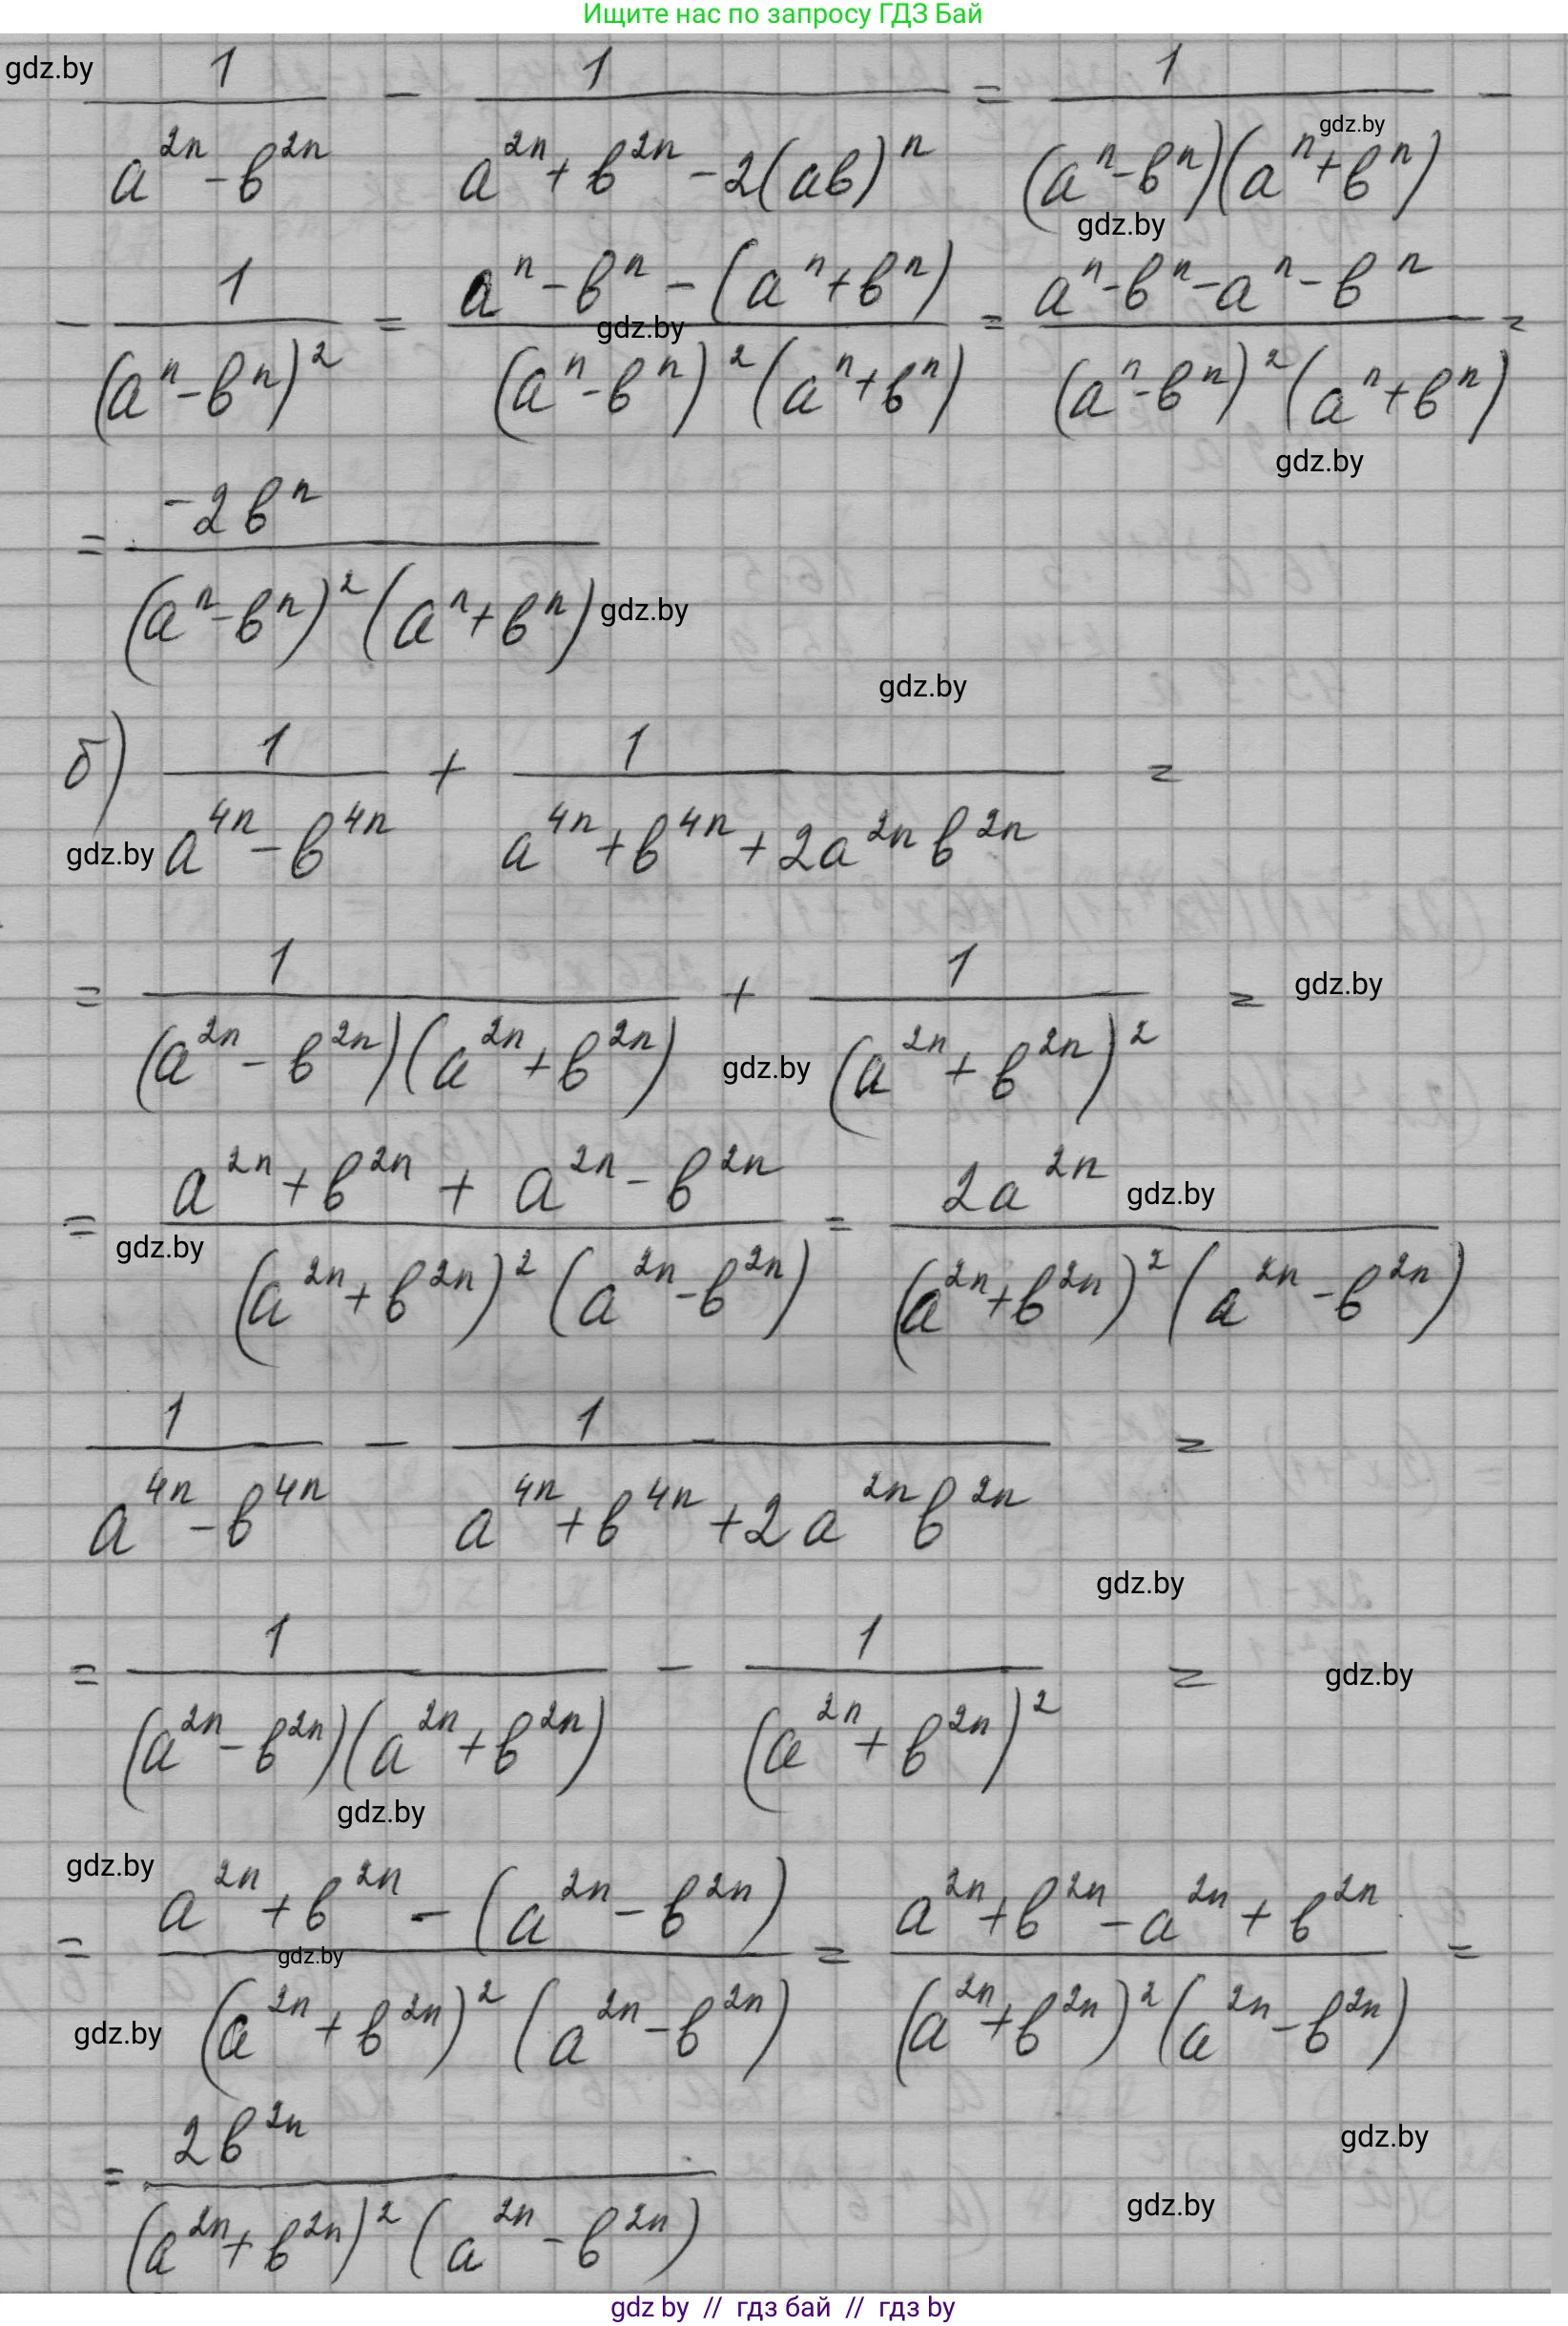 Ищите нас по запросу ГДЗ Бай
gdz.by
1/(a^2n - b^2n) - 1/(a^2n + b^2n - 2(ab)^n) = 1/((a^n - b^n)(a^n + b^n)) -
gdz.by
gdz.by
- 1/(a^n - b^n)^2 = (a^n - b^n - (a^n + b^n))/((a^n - b^n)^2 (a^n + b^n)) = (a^n - b^n - a^n - b^n)/((a^n - b^n)^2 (a^n + b^n)) =
gdz.by
gdz.by
= -2b^n/((a^n - b^n)^2 (a^n + b^n))
gdz.by
gdz.by
б) 1/(a^4n - b^4n) + 1/(a^4n + b^4n + 2a^2n b^2n) =
gdz.by
= 1/((a^2n - b^2n)(a^2n + b^2n)) + 1/(a^2n + b^2n)^2 =
gdz.by
gdz.by
= (a^2n + b^2n + a^2n - b^2n)/((a^2n + b^2n)^2 (a^2n - b^2n)) = 2a^2n/((a^2n + b^2n)^2 (a^2n - b^2n))
gdz.by
gdz.by
1/(a^4n - b^4n) - 1/(a^4n + b^4n + 2a^2n b^2n) =
gdz.by
= 1/((a^2n - b^2n)(a^2n + b^2n)) - 1/(a^2n + b^2n)^2 =
gdz.by
gdz.by
gdz.by
= (a^2n + b^2n - (a^2n - b^2n))/((a^2n + b^2n)^2 (a^2n - b^2n)) = (a^2n + b^2n - a^2n + b^2n)/((a^2n + b^2n)^2 (a^2n - b^2n)) =
gdz.by
gdz.by
gdz.by
= 2b^2n/((a^2n + b^2n)^2 (a^2n - b^2n))
gdz.by
gdz by // гдз бай // гдз by